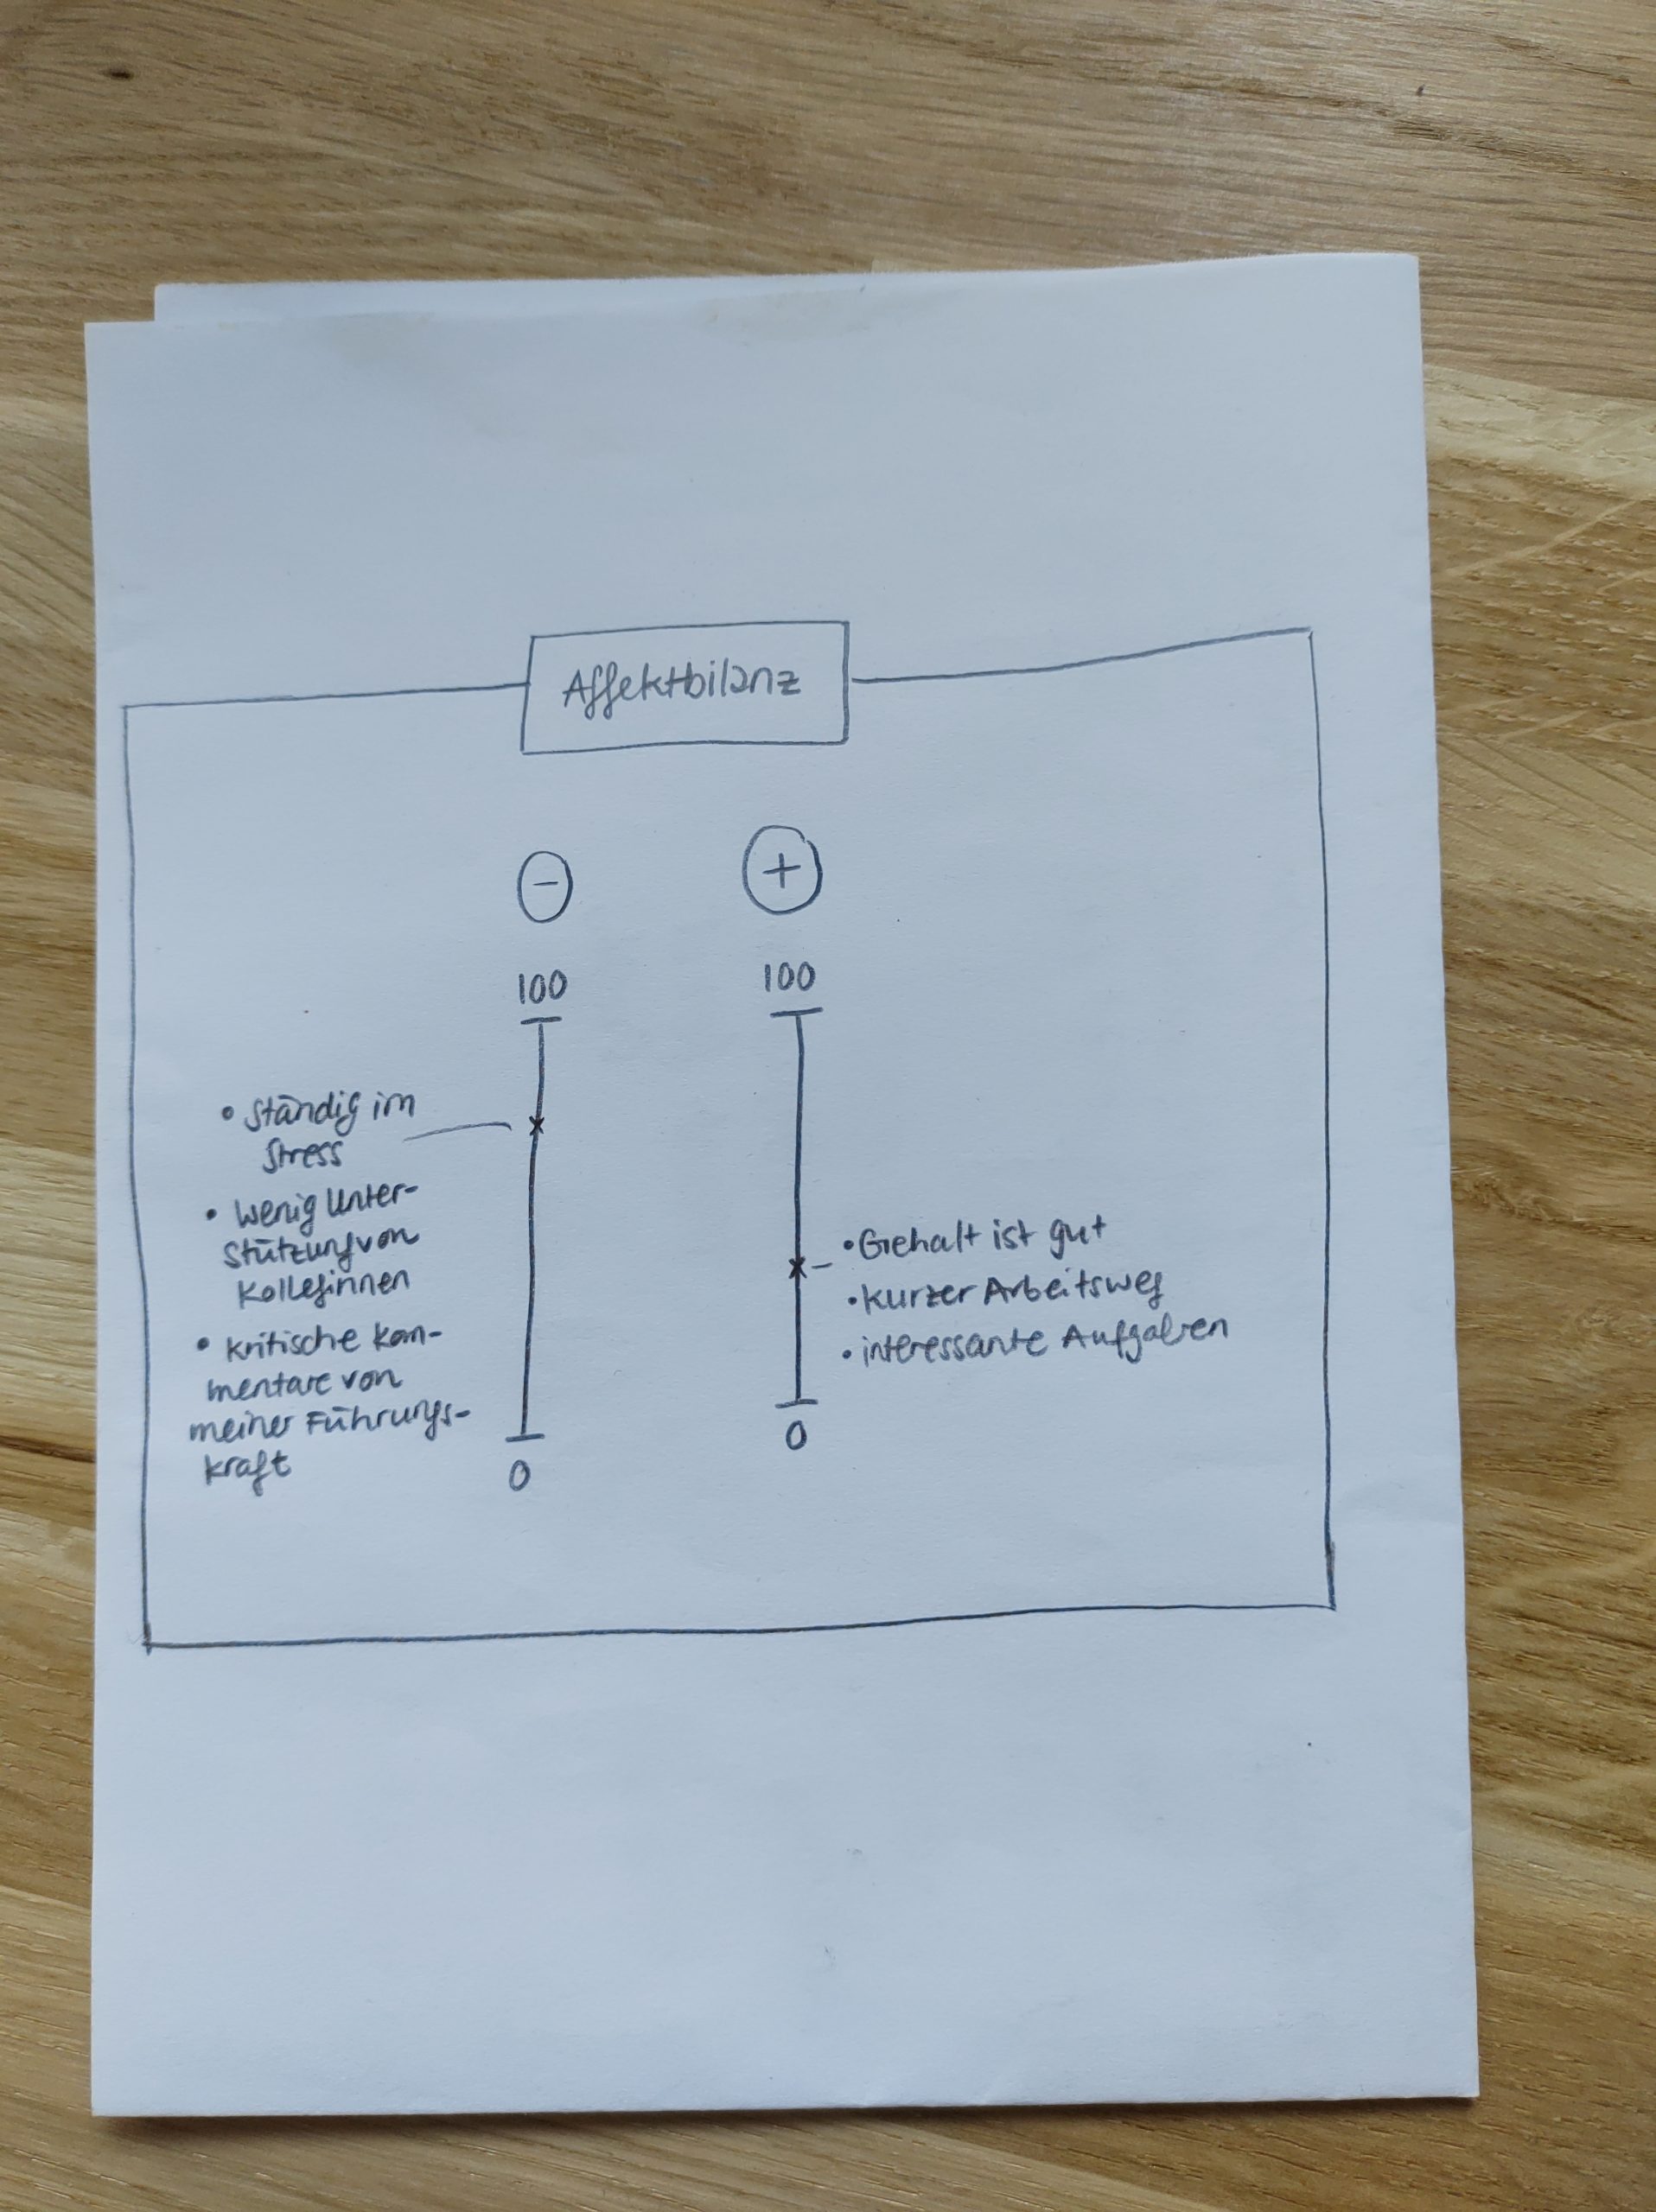 Affektbilanz
-
+
100
100
• Ständig im
Stress
• wenig Unter-
stützung von
Kolleginnen
• kritische Kom-
mentare von
meiner Führungs-
kraft
0
• Gehalt ist gut
• kurzer Arbeitsweg
• interessante Aufgaben
0